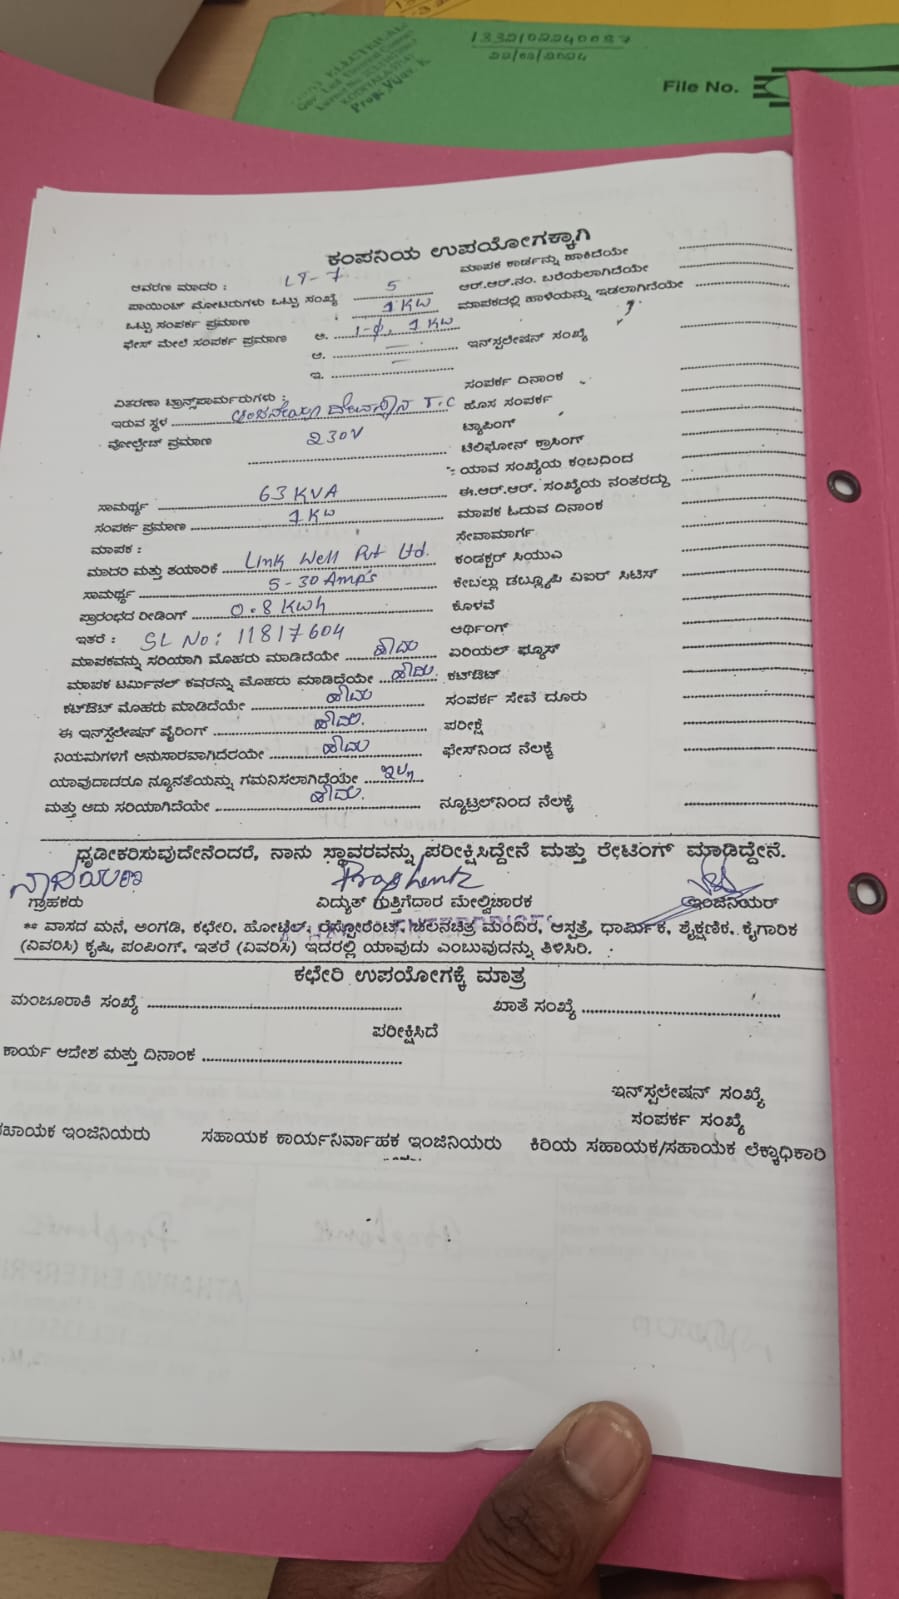 1332102240087
22/02/2024
File No.
ಕಂಪನಿಯ ಉಪಯೋಗಕ್ಕಾಗಿ
ಆವರಣ ಮಾದರಿ : LT-7
ಪಾಯಿಂಟ್ ಮೋಟರುಗಳು ಒಟ್ಟು ಸಂಖ್ಯೆ 5
ಒಟ್ಟು ಸಂಪರ್ಕ ಪ್ರಮಾಣ 1 KW
ಫೇಸ್ ಮೇಲೆ ಸಂಪರ್ಕ ಪ್ರಮಾಣ ಅ. 1-ф, 1 KW
ಆ.
ಇ.
ವಿತರಣಾ ಟ್ರಾನ್ಸ್‌ಫಾರ್ಮರುಗಳು :
ಇರುವ ಸ್ಥಳ T.C
ವೋಲ್ಟೇಜ್ ಪ್ರಮಾಣ 230V
ಸಾಮರ್ಥ್ಯ 63 KVA
ಸಂಪರ್ಕ ಪ್ರಮಾಣ 1 KW
ಮಾಪಕ :
ಮಾದರಿ ಮತ್ತು ತಯಾರಿಕೆ Link Well Pvt Ltd.
ಸಾಮರ್ಥ್ಯ 5-30 Amps
ಪ್ರಾರಂಭದ ರೀಡಿಂಗ್ 0.8 Kwh
ಇತರೆ : SL No: 11817604
ಮಾಪಕವನ್ನು ಸರಿಯಾಗಿ ಮೊಹರು ಮಾಡಿದೆಯೇ ಹೌದು
ಮಾಪಕ ಟರ್ಮಿನಲ್ ಕವರನ್ನು ಮೊಹರು ಮಾಡಿದೆಯೇ ಹೌದು.
ಕಟ್‌ಔಟ್ ಮೊಹರು ಮಾಡಿದೆಯೇ ಹೌದು
ಈ ಇನ್‌ಸ್ಟಲೇಷನ್ ವೈರಿಂಗ್ ಹೌದು.
ನಿಯಮಗಳಿಗೆ ಅನುಸಾರವಾಗಿದೆರಯೇ ಹೌದು
ಯಾವುದಾದರೂ ನ್ಯೂನತೆಯನ್ನು ಗಮನಿಸಲಾಗಿದೆಯೇ ಇಲ್ಲ
ಮತ್ತು ಅದು ಸರಿಯಾಗಿದೆಯೇ ಹೌದು.
ಮಾಪಕ ಕಾರ್ಡನ್ನು ಹಾಕಿದೆಯೇ
ಆರ್.ಆರ್.ನಂ. ಬರೆಯಲಾಗಿದೆಯೇ
ಮಾಪಕದಲ್ಲಿ ಹಾಳೆಯನ್ನು ಇಡಲಾಗಿದೆಯೇ
ಇನ್‌ಸ್ಪಲೇಷನ್ ಸಂಖ್ಯೆ
ಸಂಪರ್ಕ ದಿನಾಂಕ
ಹೊಸ ಸಂಪರ್ಕ
ಟ್ಯಾಪಿಂಗ್
ಟೆಲಿಫೋನ್ ಕ್ರಾಸಿಂಗ್
ಯಾವ ಸಂಖ್ಯೆಯ ಕಂಬದಿಂದ
ಈ.ಆರ್.ಆರ್. ಸಂಖ್ಯೆಯ ನಂತರದ್ದು
ಮಾಪಕ ಓದುವ ದಿನಾಂಕ
ಸೇವಾಮಾರ್ಗ
ಕಂಡಕ್ಟರ್ ಸಿಯುಎ
ಕೇಬಲ್ಲು ಡಬ್ಲ್ಯೂಪಿ ವಿಐರ್ ಸಿಟಿಸ್
ಕೊಳವೆ
ಅರ್ಥಿಂಗ್
ಏರಿಯಲ್ ಫ್ಯೂಸ್
ಕಟ್‌ಔಟ್
ಸಂಪರ್ಕ ಸೇವೆ ದೂರು
ಪರೀಕ್ಷೆ
ಫೇಸ್‌ನಿಂದ ನೆಲಕ್ಕೆ
ನ್ಯೂಟ್ರಲ್‌ನಿಂದ ನೆಲಕ್ಕೆ
ಧೃಡೀಕರಿಸುವುದೇನೆಂದರೆ, ನಾನು ಸ್ಥಾವರವನ್ನು ಪರೀಕ್ಷಿಸಿದ್ದೇನೆ ಮತ್ತು ರೇಟಿಂಗ್ ಮಾಡಿದ್ದೇನೆ.
ಗ್ರಾಹಕರು ವಿದ್ಯುತ್ ಗುತ್ತಿಗೆದಾರ ಮೇಲ್ವಿಚಾರಕ ಇಂಜಿನಿಯರ್
** ವಾಸದ ಮನೆ, ಅಂಗಡಿ, ಕಛೇರಿ, ಹೋಟ್ಟಲ್, ರೆಸ್ಟೋರೆಂಟ್, ಚಲನಚಿತ್ರ ಮಂದಿರ, ಆಸ್ಪತ್ರೆ, ಧಾರ್ಮಿಕ, ಶೈಕ್ಷಣಿಕ, ಕೈಗಾರಿಕ
(ವಿವರಿಸಿ) ಕೃಷಿ, ಪಂಪಿಂಗ್, ಇತರೆ (ವಿವರಿಸಿ) ಇದರಲ್ಲಿ ಯಾವುದು ಎಂಬುವುದನ್ನು ತಿಳಿಸಿರಿ.
ಕಛೇರಿ ಉಪಯೋಗಕ್ಕೆ ಮಾತ್ರ
ಮಂಜೂರಾತಿ ಸಂಖ್ಯೆ ಖಾತೆ ಸಂಖ್ಯೆ
ಪರೀಕ್ಷಿಸಿದೆ
ಕಾರ್ಯ ಆದೇಶ ಮತ್ತು ದಿನಾಂಕ
ಇನ್‌ಸ್ಪಲೇಷನ್ ಸಂಖ್ಯೆ
ಸಂಪರ್ಕ ಸಂಖ್ಯೆ
ಸಹಾಯಕ ಇಂಜಿನಿಯರು ಸಹಾಯಕ ಕಾರ್ಯನಿರ್ವಾಹಕ ಇಂಜಿನಿಯರು ಕಿರಿಯ ಸಹಾಯಕ/ಸಹಾಯಕ ಲೆಕ್ಕಾಧಿಕಾರಿ